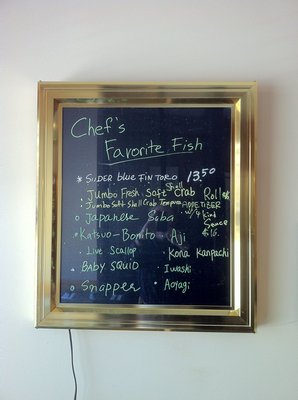 Chef's
Favorite Fish
* SUDER blue FIN TORO 13.50
Jumbo Fresh Soft Shell Crab Roll
Jumbo Soft Shell Crab Tempura APPETIZER
Japanese Saba
w/ Sauce
Katsuo-Bonito • Aji
• Live Scallop • Kona Kanpachi
• BABY SQUID • Iwashi
• Snapper • Aoyagi